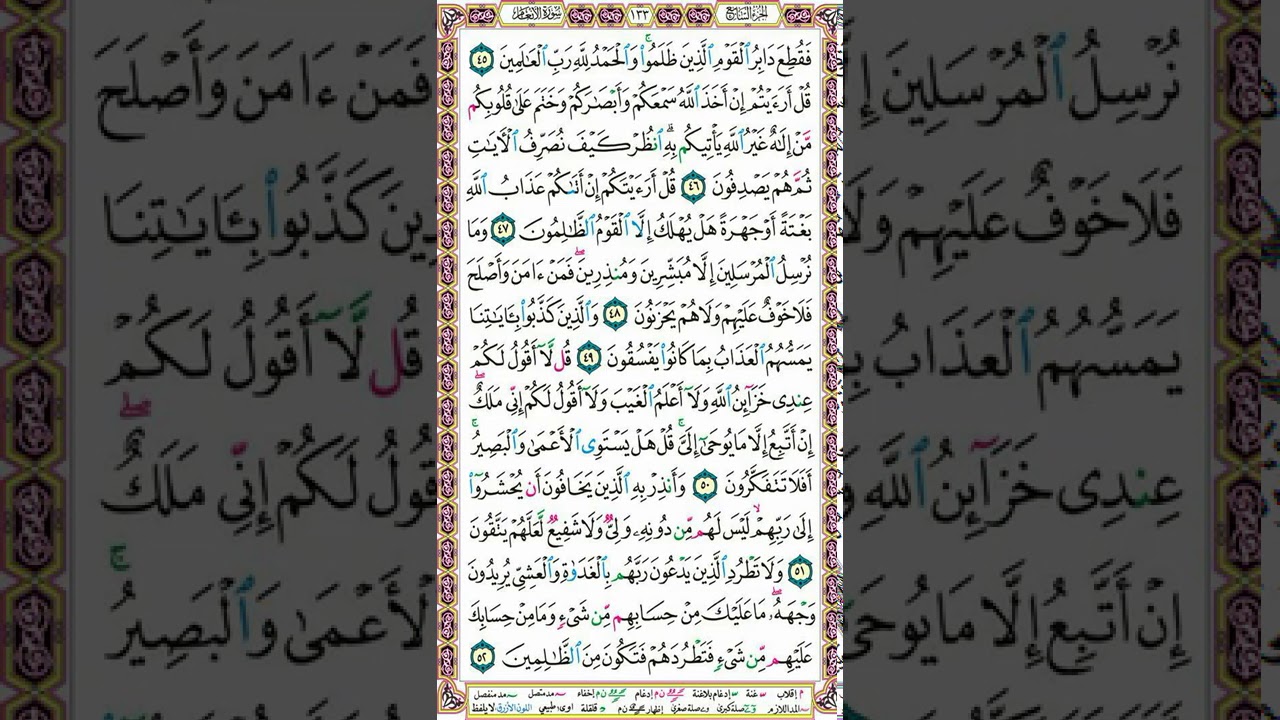 الجزء السابع ١٣٣ سورة الأنعام
فَقُطِعَ دَابِرُ ٱلْقَوْمِ ٱلَّذِينَ ظَلَمُوا۟ ۚ وَٱلْحَمْدُ لِلَّهِ رَبِّ ٱلْعَـٰلَمِينَ ٤٥
قُلْ أَرَءَيْتُمْ إِنْ أَخَذَ ٱللَّهُ سَمْعَكُمْ وَأَبْصَـٰرَكُمْ وَخَتَمَ عَلَىٰ قُلُوبِكُم
مَّنْ إِلَـٰهٌ غَيْرُ ٱللَّهِ يَأْتِيكُم بِهِ ۗ ٱنظُرْ كَيْفَ نُصَرِّفُ ٱلْـَٔايَـٰتِ
ثُمَّ هُمْ يَصْدِفُونَ ٤٦ قُلْ أَرَءَيْتَكُمْ إِنْ أَتَىٰكُمْ عَذَابُ ٱللَّهِ
بَغْتَةً أَوْ جَهْرَةً هَلْ يُهْلَكُ إِلَّا ٱلْقَوْمُ ٱلظَّـٰلِمُونَ ٤٧ وَمَا
نُرْسِلُ ٱلْمُرْسَلِينَ إِلَّا مُبَشِّرِينَ وَمُنذِرِينَ ۖ فَمَنْ ءَامَنَ وَأَصْلَحَ
فَلَا خَوْفٌ عَلَيْهِمْ وَلَا هُمْ يَحْزَنُونَ ٤٨ وَٱلَّذِينَ كَذَّبُوا۟ بِـَٔايَـٰتِنَا
يَمَسُّهُمُ ٱلْعَذَابُ بِمَا كَانُوا۟ يَفْسُقُونَ ٤٩ قُل لَّآ أَقُولُ لَكُمْ
عِندِى خَزَآئِنُ ٱللَّهِ وَلَآ أَعْلَمُ ٱلْغَيْبَ وَلَآ أَقُولُ لَكُمْ إِنِّى مَلَكٌ ۖ
إِنْ أَتَّبِعُ إِلَّا مَا يُوحَىٰٓ إِلَىَّ ۚ قُلْ هَلْ يَسْتَوِى ٱلْأَعْمَىٰ وَٱلْبَصِيرُ ۚ
أَفَلَا تَتَفَكَّرُونَ ٥٠ وَأَنذِرْ بِهِ ٱلَّذِينَ يَخَافُونَ أَن يُحْشَرُوٓا۟
إِلَىٰ رَبِّهِمْ ۙ لَيْسَ لَهُم مِّن دُونِهِۦ وَلِىٌّ وَلَا شَفِيعٌ لَّعَلَّهُمْ يَتَّقُونَ
٥١ وَلَا تَطْرُدِ ٱلَّذِينَ يَدْعُونَ رَبَّهُم بِٱلْغَدَوٰةِ وَٱلْعَشِىِّ يُرِيدُونَ
وَجْهَهُۥ ۖ مَا عَلَيْكَ مِنْ حِسَابِهِم مِّن شَىْءٍ وَمَا مِنْ حِسَابِكَ
عَلَيْهِم مِّن شَىْءٍ فَتَطْرُدَهُمْ فَتَكُونَ مِنَ ٱلظَّـٰلِمِينَ ٥٢
م إقلاب غنة إدغام بلاغنة إدغام ن م إخفاء مد متصل مد منفصل
المد اللازم صلة كبرى صلة صغرى إظهار ن م قلقلة اوى طبيعي اللون الأزرق لا يلفظ